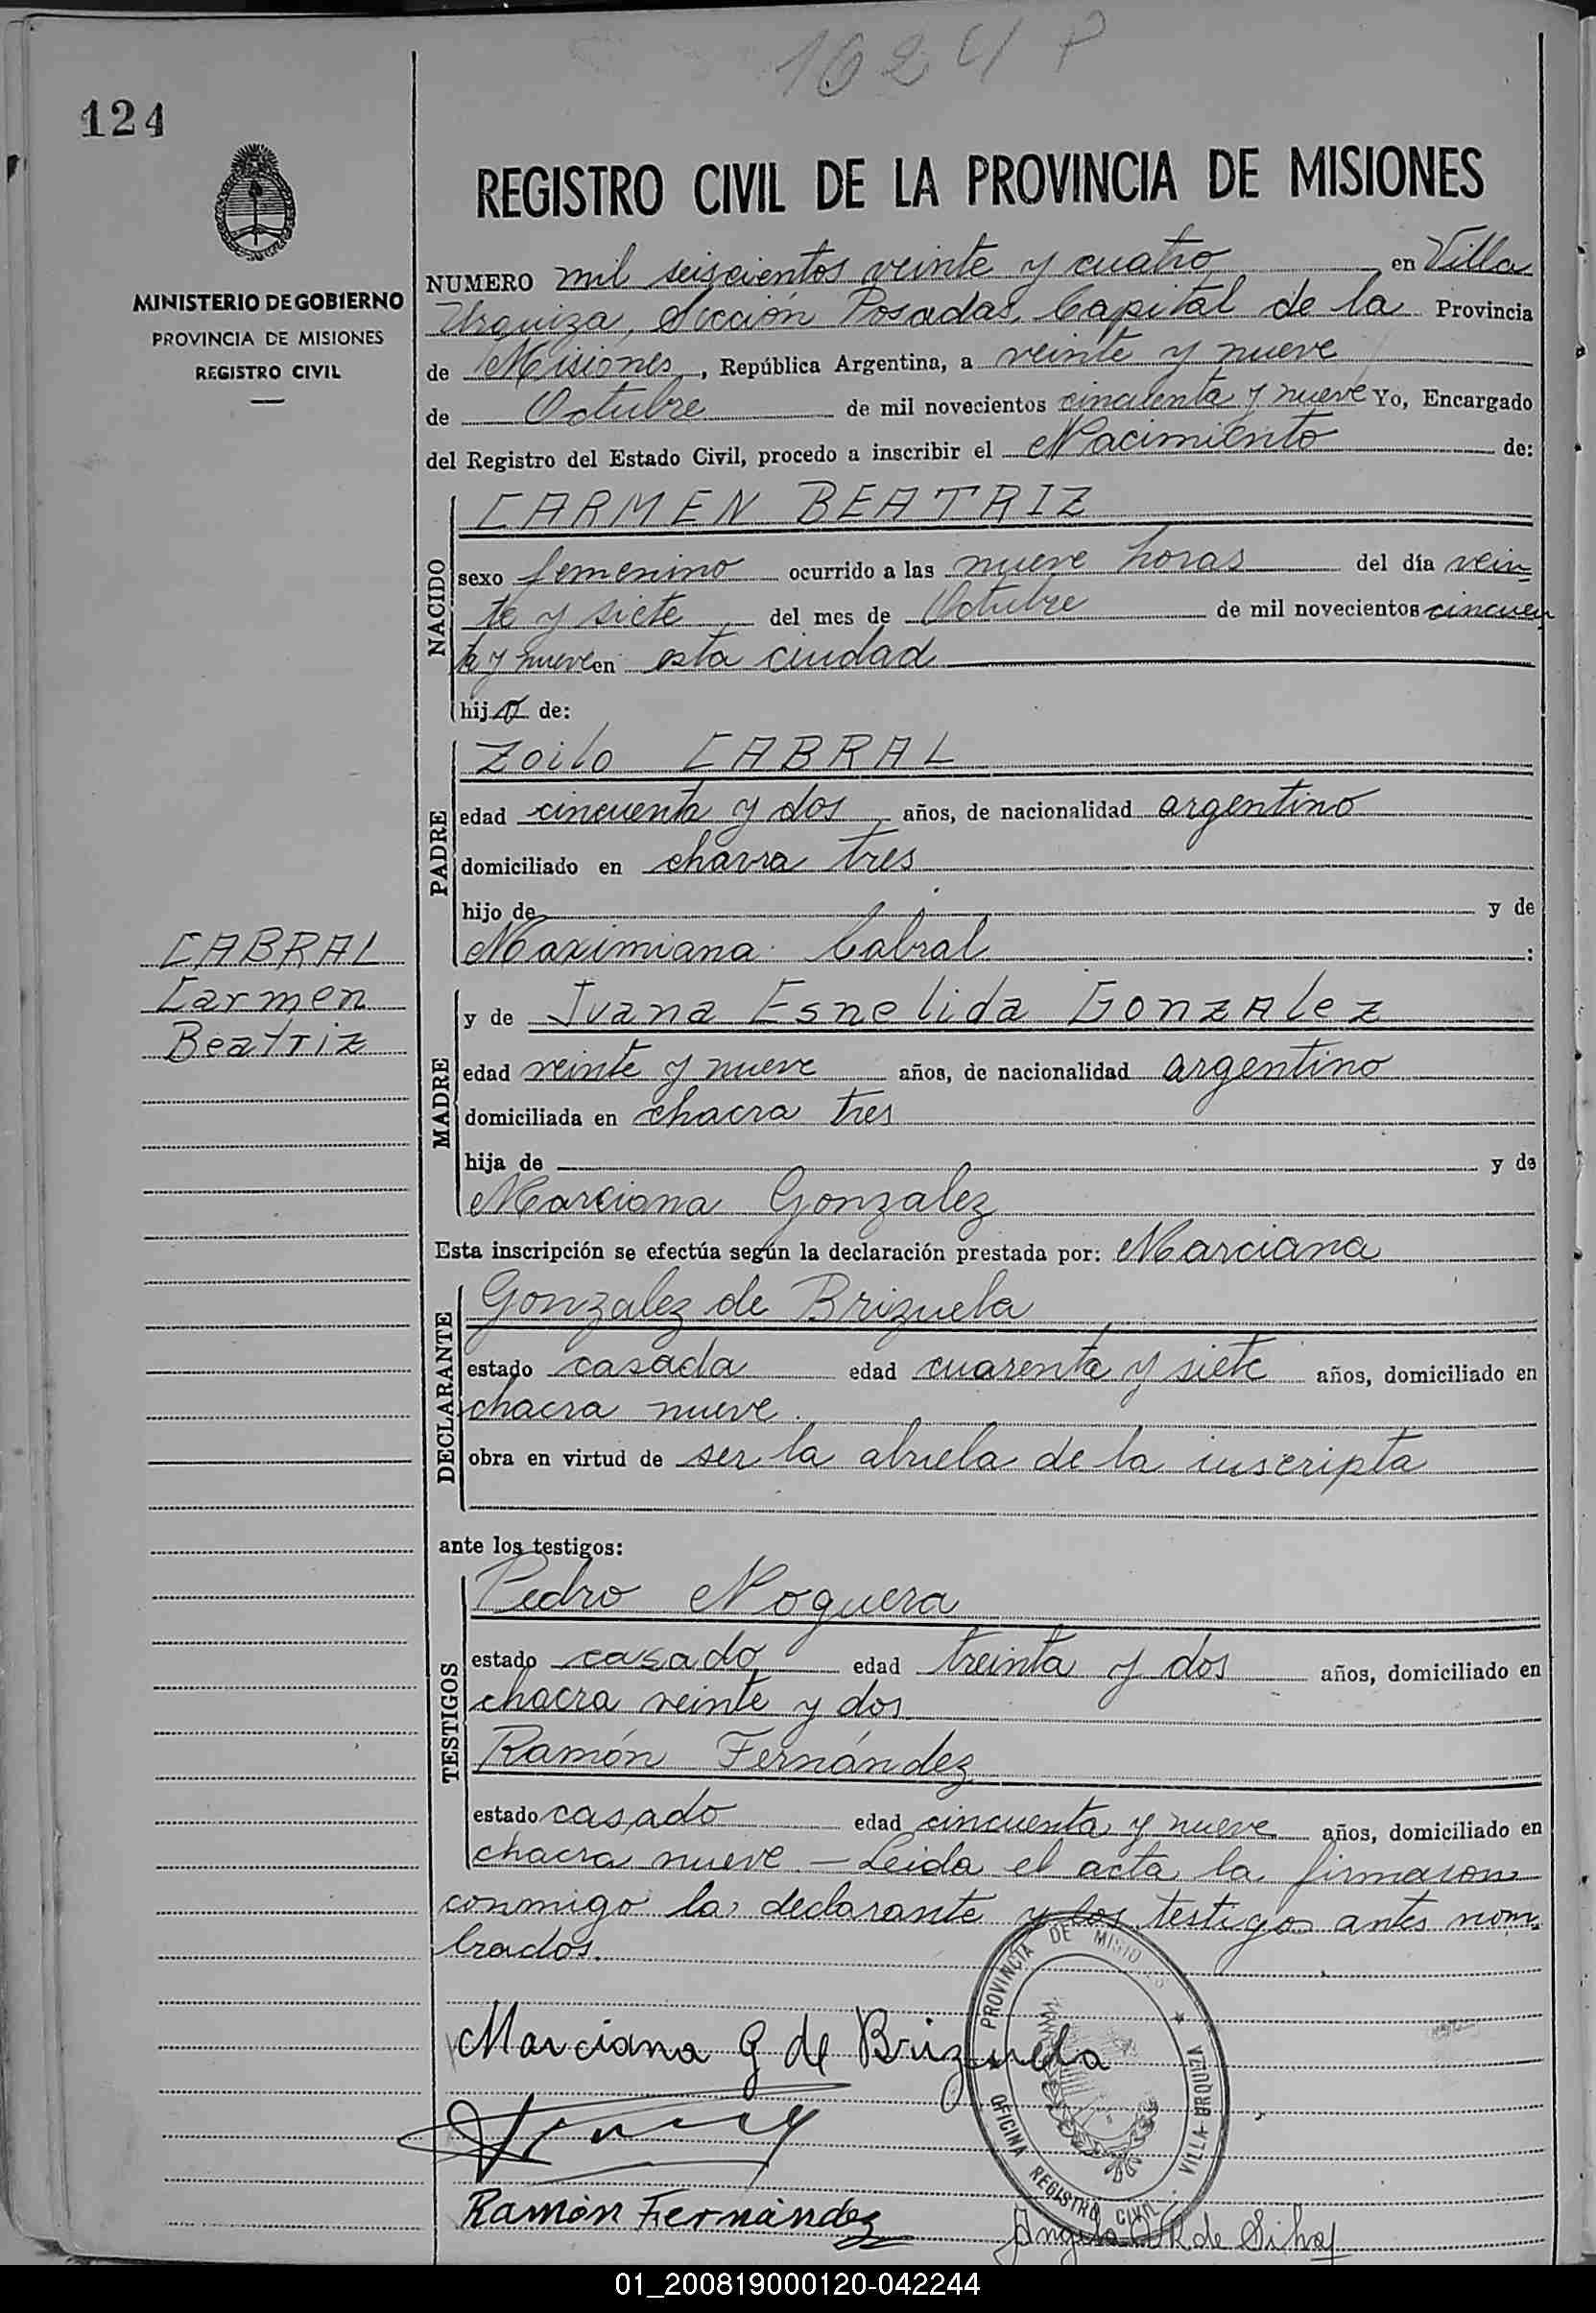 1624 P
124
MINISTERIO DE GOBIERNO
PROVINCIA DE MISIONES
REGISTRO CIVIL
REGISTRO CIVIL DE LA PROVINCIA DE MISIONES
NUMERO mil seiscientos veinte y cuatro en Villa
Urquiza, Sección Posadas, Capital de la Provincia
de Misiones, República Argentina, a veinte y nueve
de Octubre de mil novecientos cincuenta y nueve Yo, Encargado
del Registro del Estado Civil, procedo a inscribir el Nacimiento de:
NACIDO
CARMEN BEATRIZ
sexo femenino ocurrido a las nueve horas del día vein-
te y siete del mes de Octubre de mil novecientos cincuen
ta y nueve en esta ciudad
hija de:
PADRE
Zoilo CABRAL
edad cincuenta y dos años, de nacionalidad argentino
domiciliado en chacra tres
hijo de y de
Maximiana Cabral :
CABRAL
Carmen
Beatriz
MADRE
y de Juana Esnelida GonzAlez
edad veinte y nueve años, de nacionalidad argentino
domiciliada en chacra tres
hija de y de
Marciana Gonzalez
Esta inscripción se efectúa según la declaración prestada por: Marciana
DECLARANTE
Gonzalez de Brizuela
estado casada edad cuarenta y siete años, domiciliado en
chacra nueve.
obra en virtud de ser la abuela de la inscripta
ante los testigos:
TESTIGOS
Pedro Noguera
estado casado edad treinta y dos años, domiciliado en
chacra veinte y dos
Ramón Fernández
estado casado edad cincuenta y nueve años, domiciliado en
chacra nueve - Leida el acta la firmaron
conmigo la declarante y los testigos antes nom-
brados.
Marciana G de Brizuela
PROVINCIA DE MISIONES
VILLA URQUIZA
OFICINA REGISTRO CIVIL
Ramón Fernández
Angela R de Silva
01_200819000120-042244